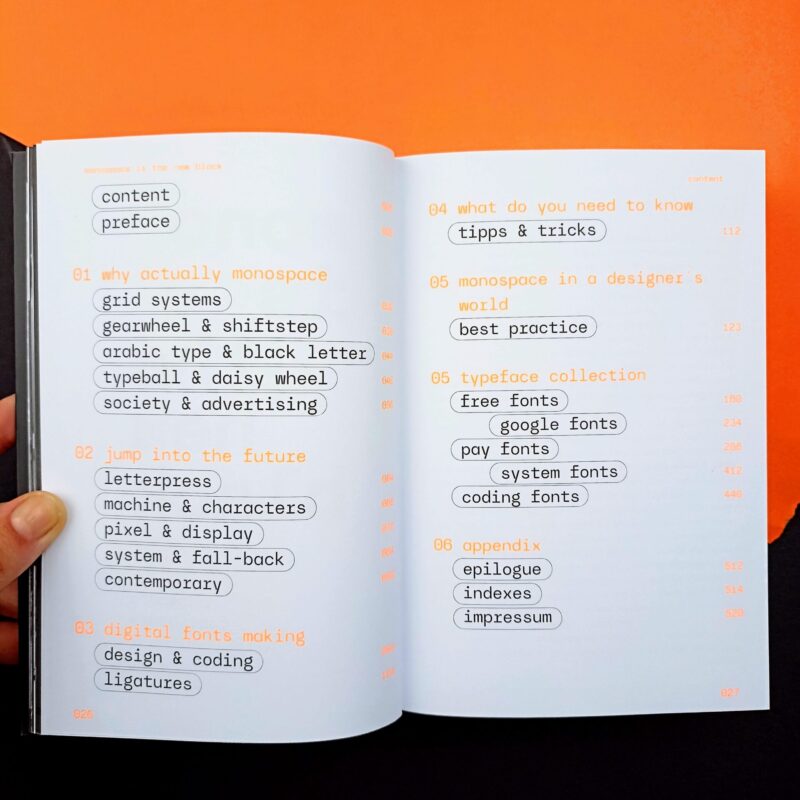 monospace is the new black
content
preface
01 why actually monospace
grid systems
gearwheel & shiftstep
arabic type & black letter
typeball & daisy wheel
society & advertising
02 jump into the future
letterpress
machine & characters
pixel & display
system & fall-back
contemporary
03 digital fonts making
design & coding
ligatures
026
content
04 what do you need to know
tipps & tricks 112
05 monospace in a designer´s
world
best practice 123
05 typeface collection
free fonts
google fonts 234
pay fonts
system fonts 412
coding fonts 440
06 appendix
epilogue 512
indexes 514
impressum 520
027